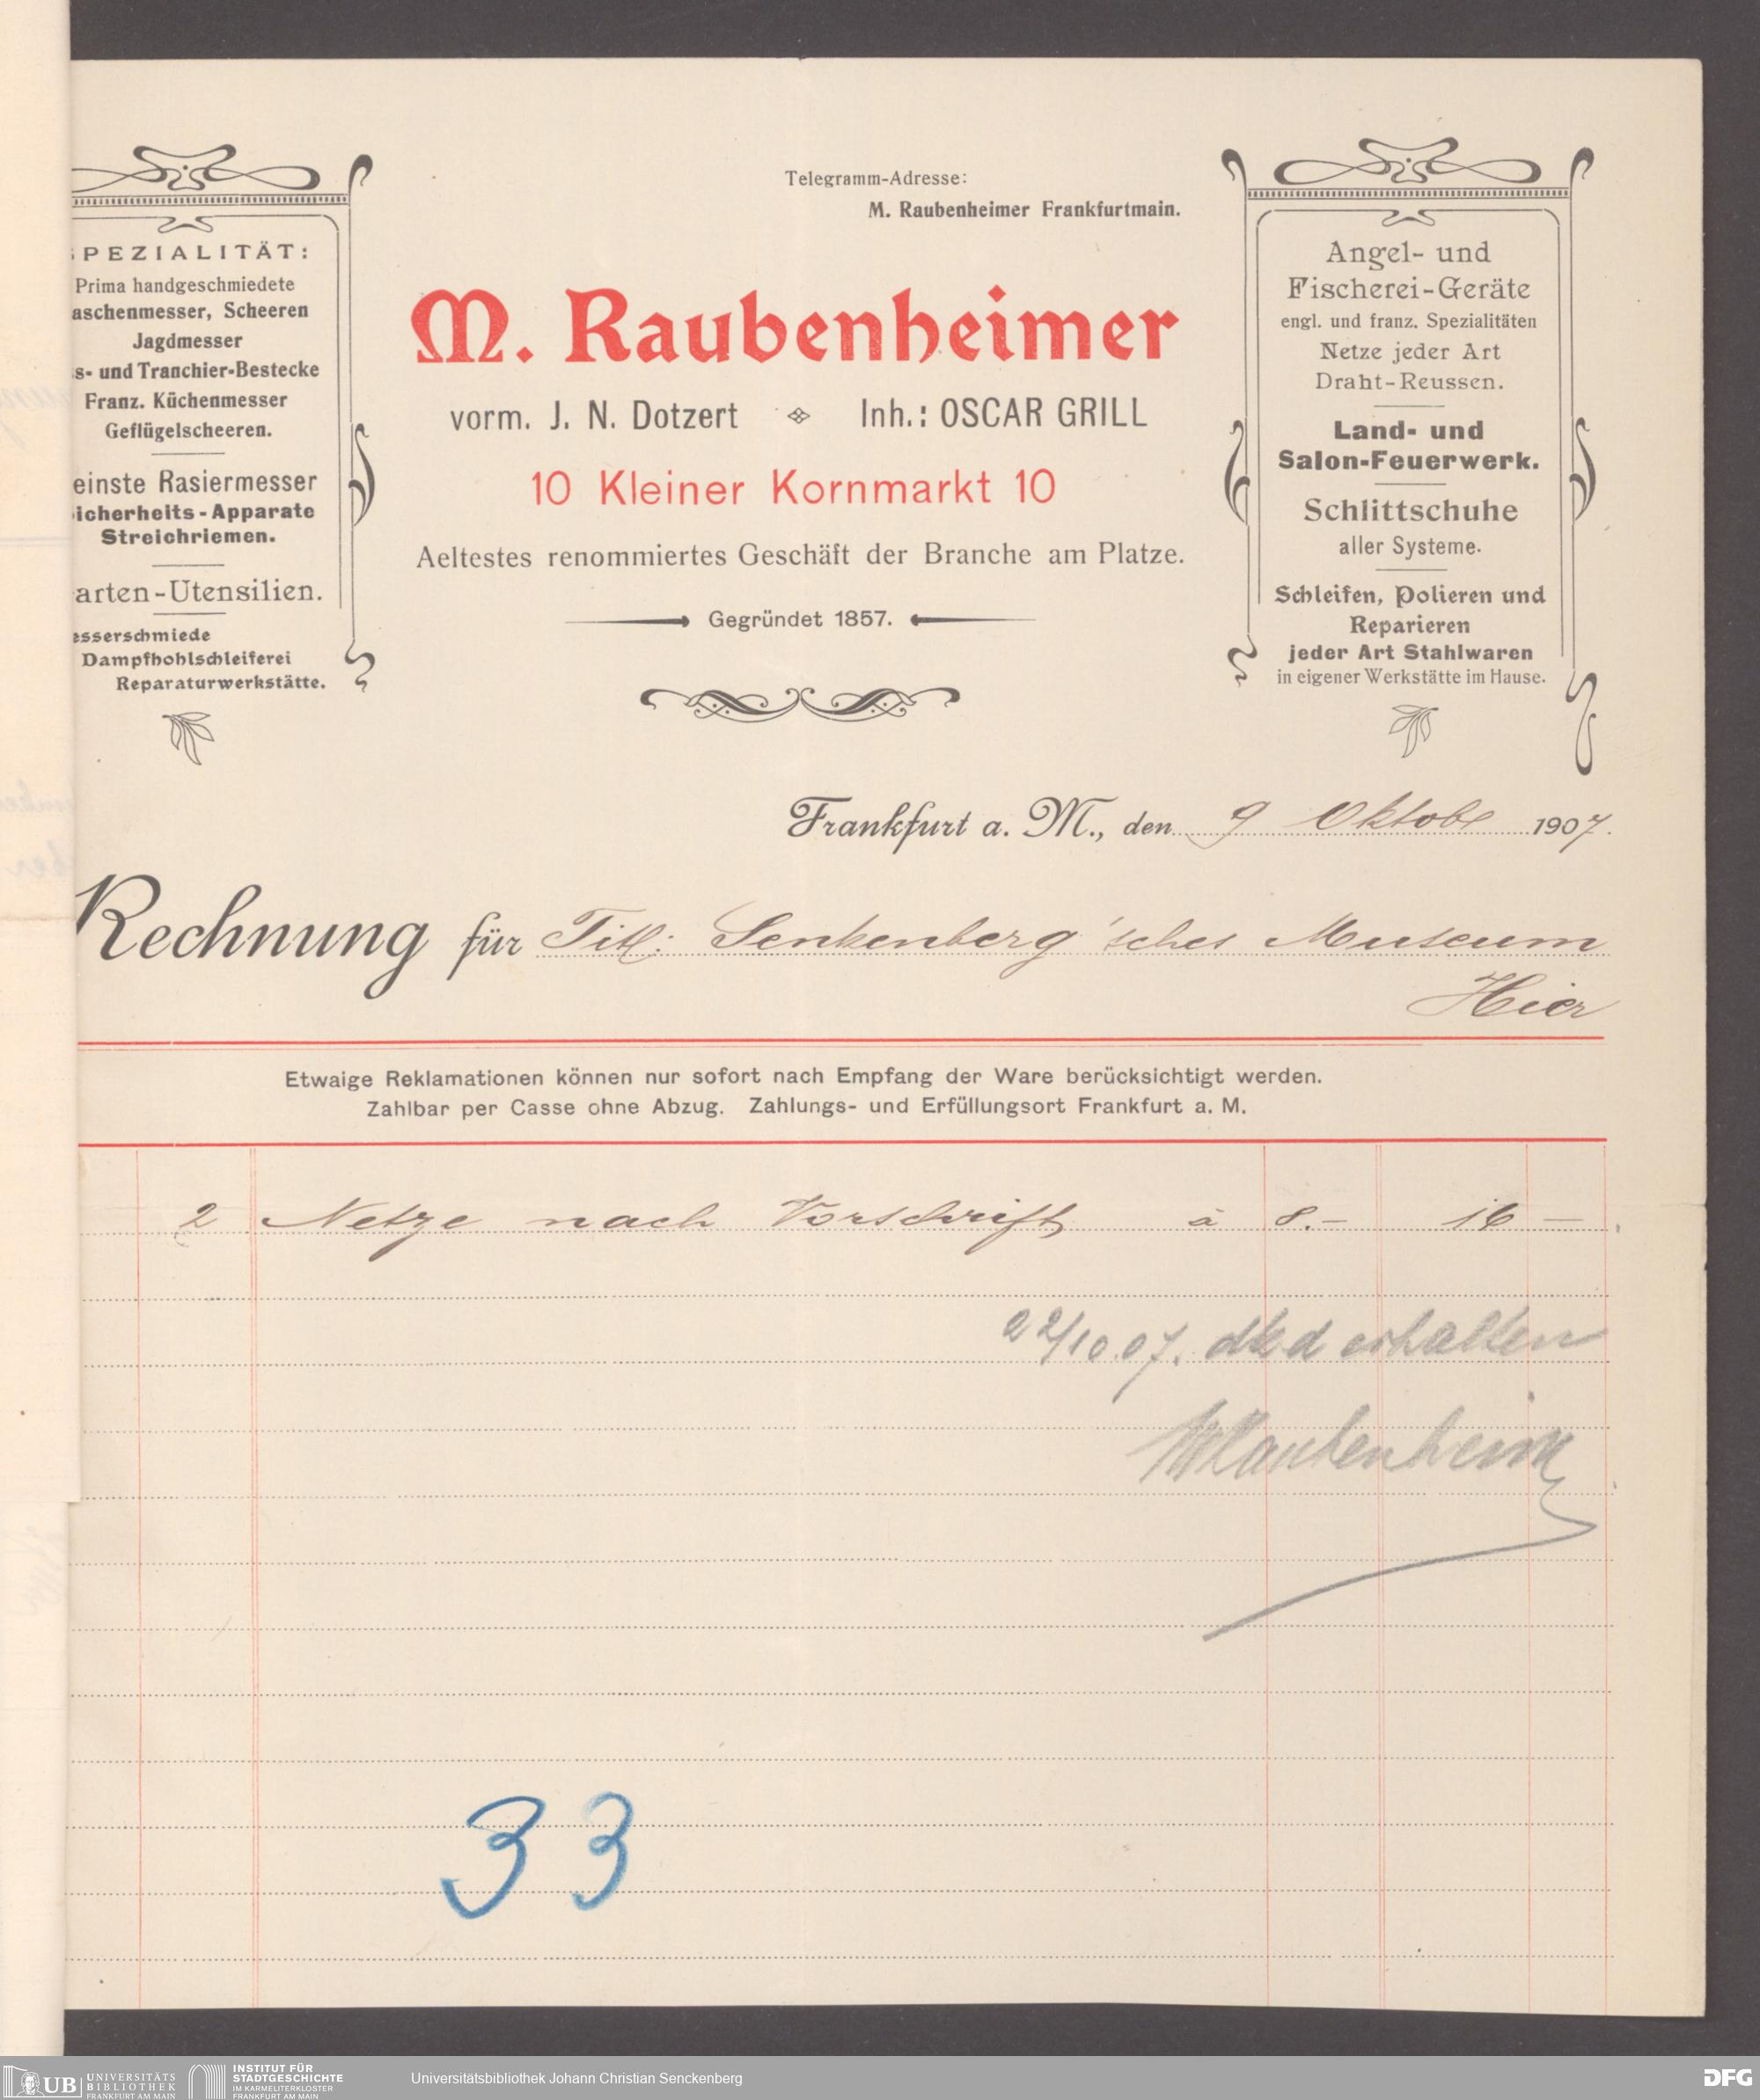 Telegramm-Adresse:
M. Raubenheimer Frankfurtmain.
PEZIALITÄT:
Prima handgeschmiedete
aschenmesser, Scheeren
Jagdmesser
s- und Tranchier-Bestecke
Franz. Küchenmesser
Geflügelscheeren.
einste Rasiermesser
icherheits-Apparate
Streichriemen.
arten-Utensilien.
esserschmiede
Dampfhohlschleiferei
Reparaturwerkstätte.
M. Raubenheimer
vorm. J. N. Dotzert Inh.: OSCAR GRILL
10 Kleiner Kornmarkt 10
Aeltestes renommiertes Geschäft der Branche am Platze.
Gegründet 1857.
Angel- und
Fischerei-Geräte
engl. und franz. Spezialitäten
Netze jeder Art
Draht-Reussen.
Land- und
Salon-Feuerwerk.
Schlittschuhe
aller Systeme.
Schleifen, Polieren und
Reparieren
jeder Art Stahlwaren
in eigener Werkstätte im Hause.
Frankfurt a. M., den 9 Oktobe 1907.
Rechnung für Titl: Senkenberg'sches Museum
Hier
Etwaige Reklamationen können nur sofort nach Empfang der Ware berücksichtigt werden.
Zahlbar per Casse ohne Abzug. Zahlungs- und Erfüllungsort Frankfurt a. M.
2 Netze nach Vorschrift à 8.- 16 —
22/10.07. erhalten
MRaubenheim
33
UB UNIVERSITÄTS
BIBLIOTHEK
FRANKFURT AM MAIN
INSTITUT FÜR
STADTGESCHICHTE
IM KARMELITERKLOSTER
FRANKFURT AM MAIN
Universitätsbibliothek Johann Christian Senckenberg
DFG